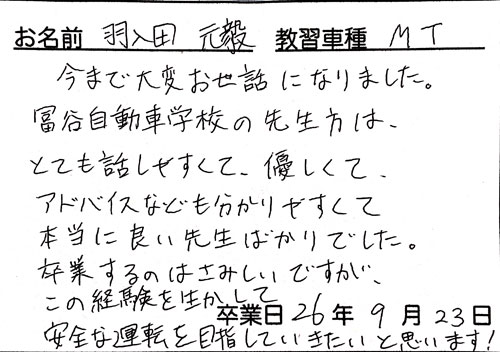 お名前 羽入田 元毅 教習車種 MT
今まで大変お世話になりました。
冨谷自動車学校の先生方は、
とても話しやすくて、優しくて、
アドバイスなども分かりやすくて
本当に良い先生ばかりでした。
卒業するのはさみしいですが、
この経験を生かして
卒業日 26年 9月 23日
安全な運転を目指していきたいと思います!